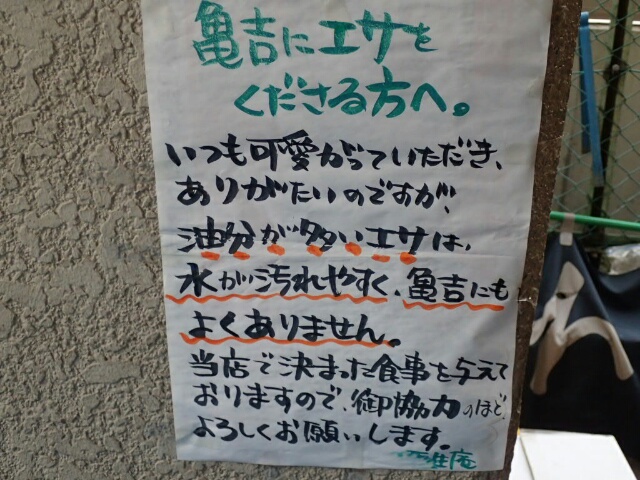 亀吉にエサを
くださる方へ。
いつも可愛がっていただき、
ありがたいのですが、
油分が多いエサは、
水が汚れやすく、亀吉にも
よくありません。
当店で決まった食事を与えて
おりますので、御協力のほど、
よろしくお願いします。